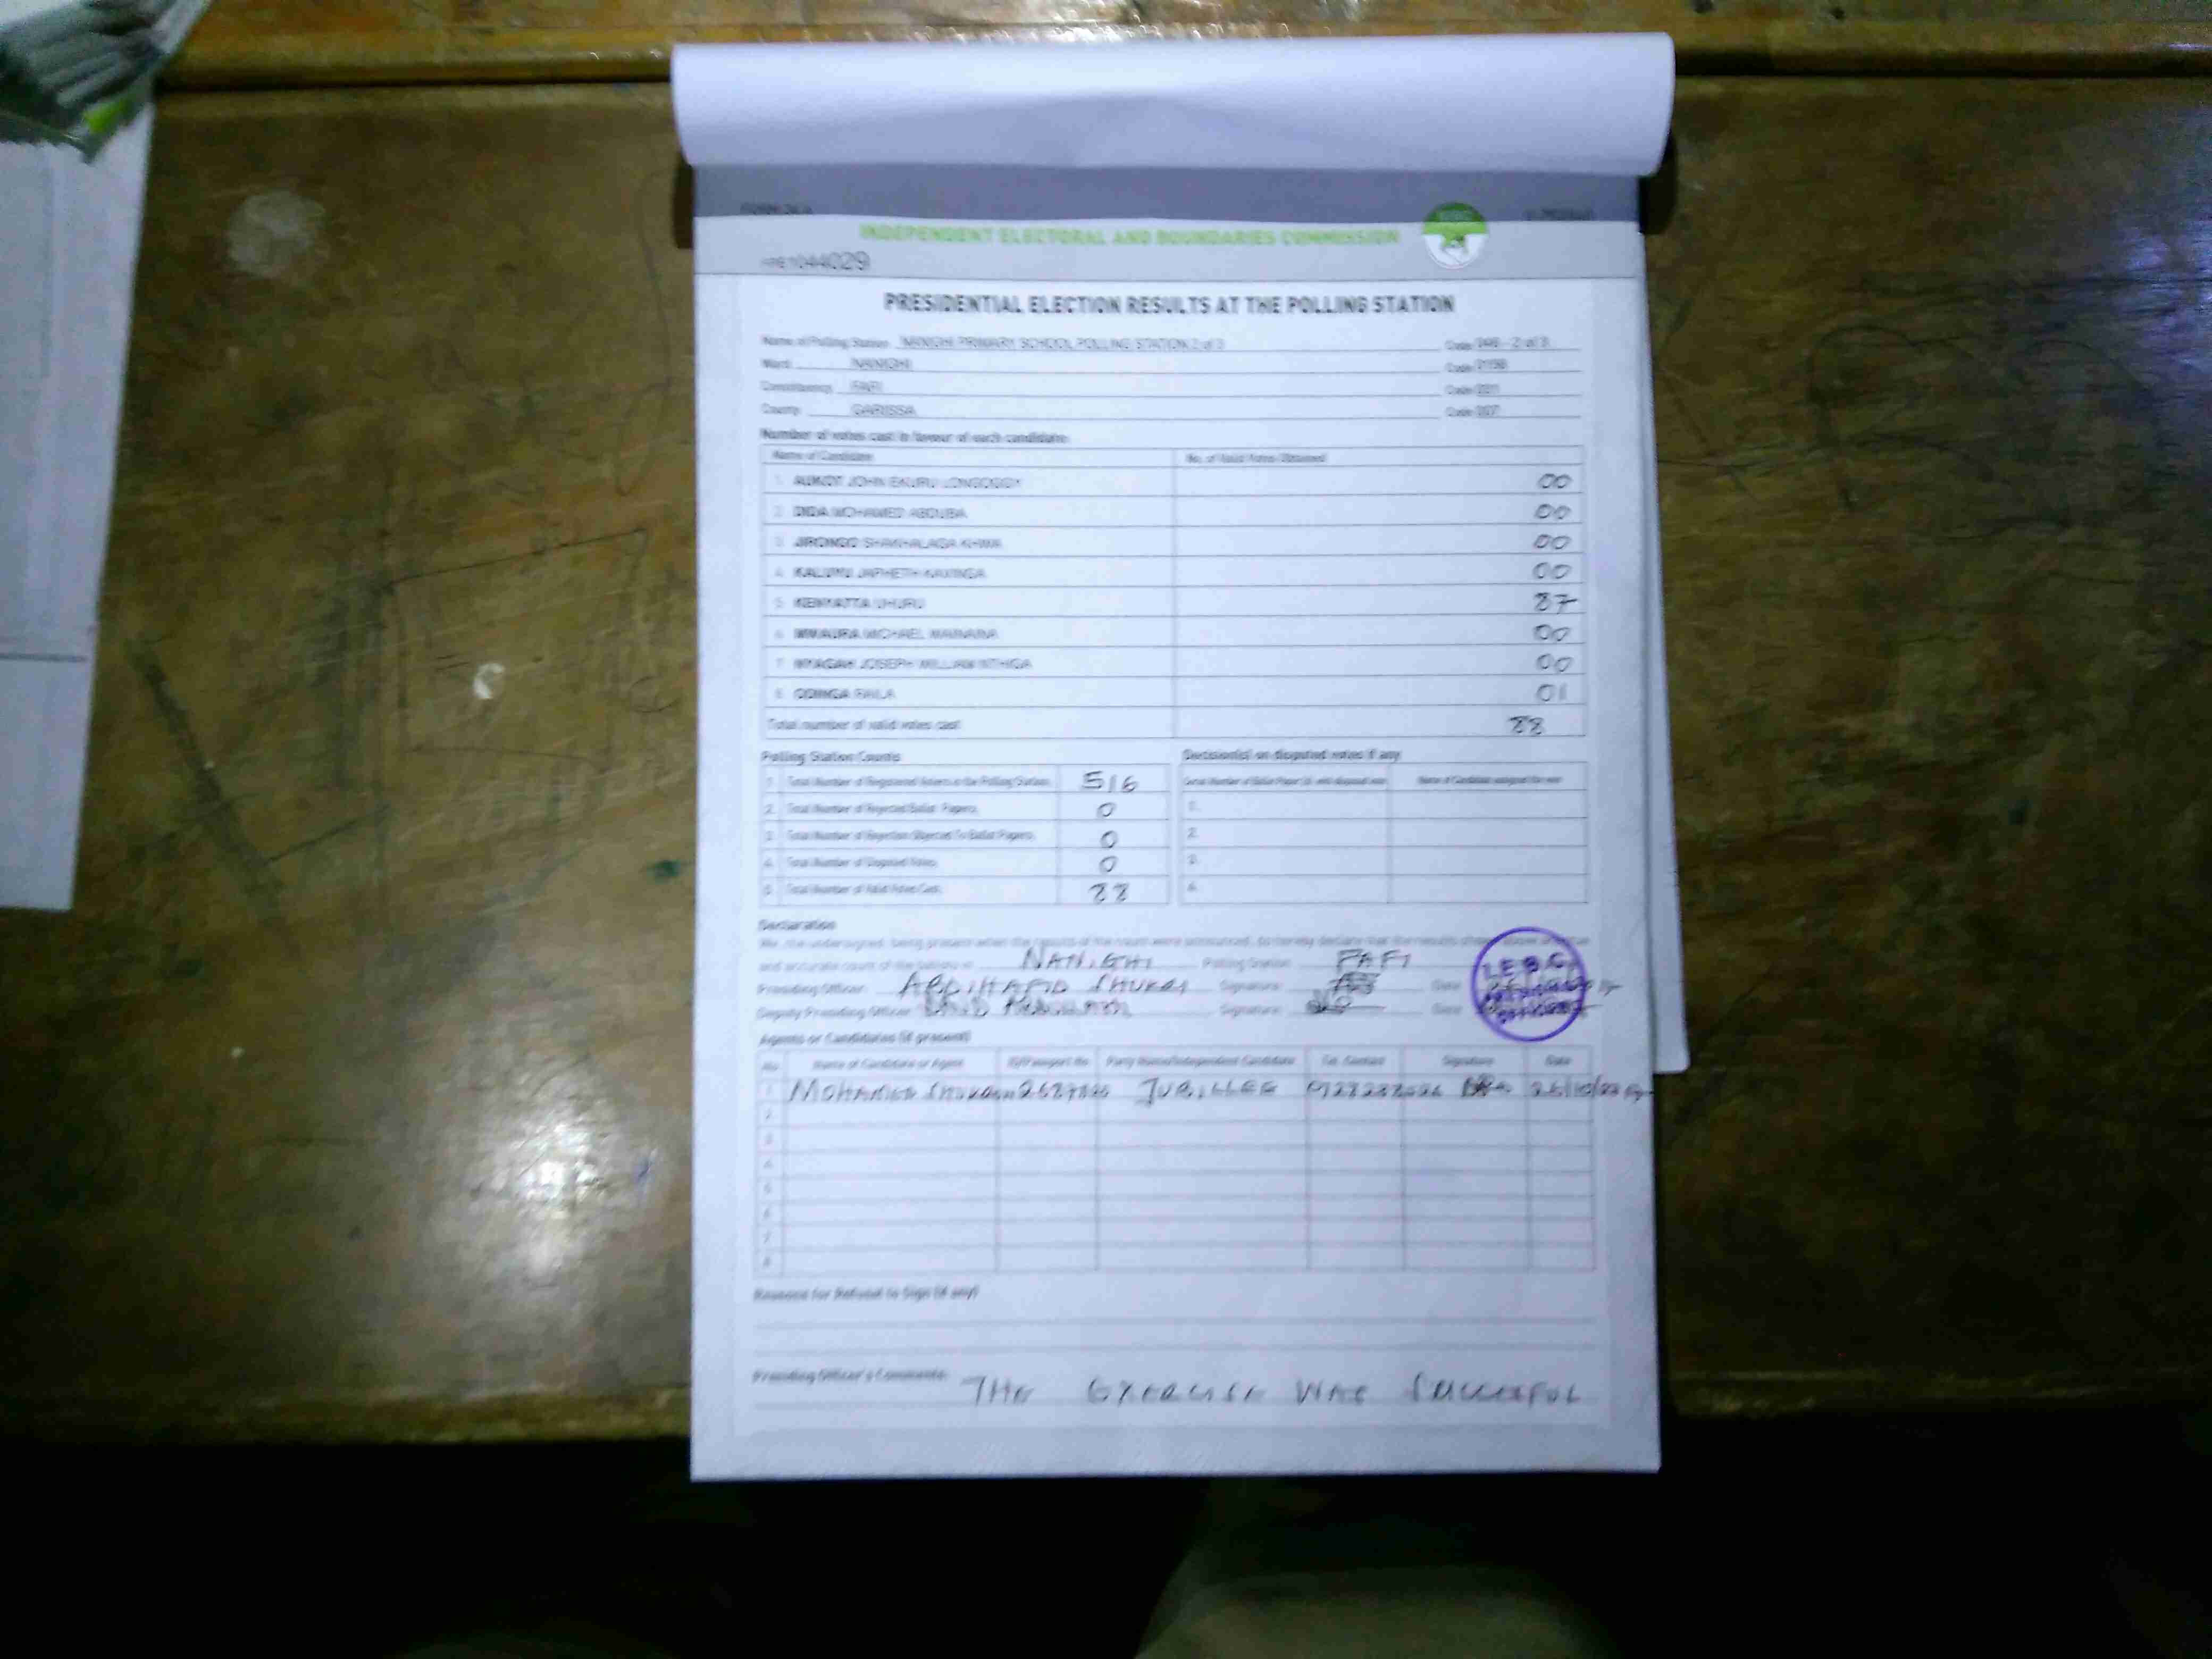 FORM 34 A
INDEPENDENT ELECTORAL AND BOUNDARIES COMMISSION
IEBC
PRE1044029
PRESIDENTIAL ELECTION RESULTS AT THE POLLING STATION
Name of Polling Station NANIGHI PRIMARY SCHOOL POLLING STATION 2 of 3 Code 2 of 3
Ward NANIGHI Code
Constituency FAFI Code
County GARISSA Code 007
Number of votes cast in favour of each candidate:
Name of Candidate No. of Valid Votes Obtained
1. AUKOT JOHN EKURU LONGOGGY 00
2. DIDA MOHAMED ABDUBA 00
3. JIRONGO SHAKHALAGA KHWA 00
4. KALUYU JAPHETH KAVINGA 00
5. KENYATTA UHURU 87
6. MWAURA MICHAEL WAINAINA 00
7. NYAGAH JOSEPH WILLIAM NTHIGA 00
8. ODINGA RAILA 01
Total number of valid votes cast 88
Polling Station Counts Decision(s) on disputed votes if any
1. Total Number of Registered Voters in the Polling Station 516 Serial Number of Ballot Paper (s) with disputed vote Name of Candidate assigned the vote
2. Total Number of Rejected Ballot Papers 0 1.
3. Total Number of Rejection Objected To Ballot Papers 0 2.
4. Total Number of Disputed Votes 0 3.
5. Total Number of Valid Votes Cast 88 4.
Declaration
We, the undersigned, being present when the results of the count were announced, do hereby declare that the results shown above
and accurate count of the ballots in NANIGHI Polling Station FAFI
Presiding Officer ABDIHAFID SHUKRI Signature Date
Deputy Presiding Officer Signature Date
I.E.B.C
Agents or Candidates (if present)
No. Name of Candidate or Agent ID/Passport No Party Name/Independent Candidate Tel. Contact Signature Date
1 MOHAMED JUBILLEE
2
3
4
5
6
7
8
Reasons for Refusal to Sign (if any)
Presiding Officer's Comments: THE EXERCISE WAS SUCCESSFUL